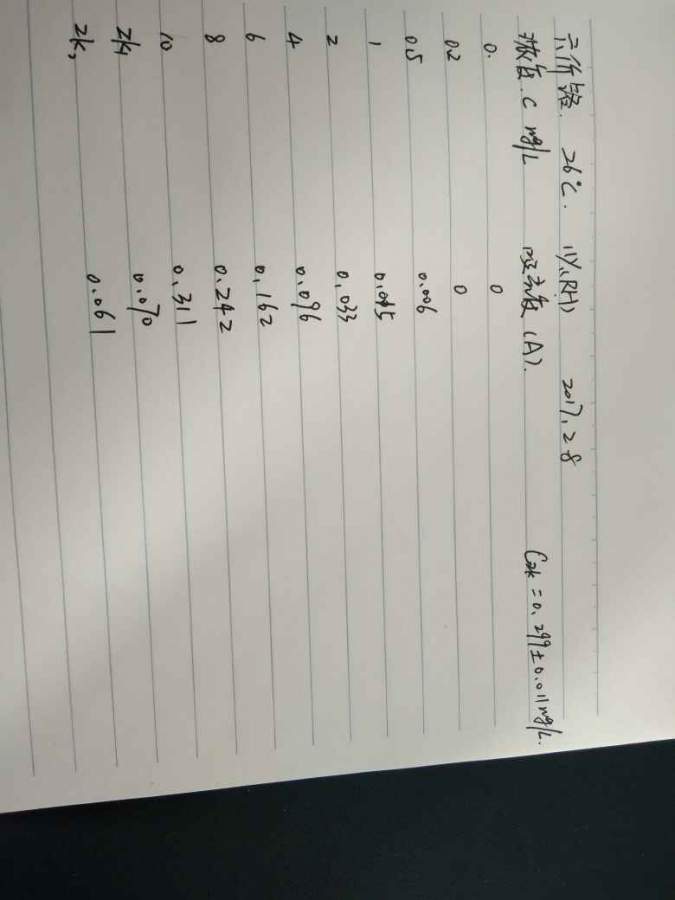 六价铬. 26℃. 11%(RH) 2017.2.8
浓度.C mg/L 吸光度(A). C2k=0.299±0.011mg/L.
0. 0
0.2 0
0.5 0.006
1 0.015
2 0.033
4 0.096
6 0.162
8 0.242
10 0.311
2k1 0.070
2k2 0.061